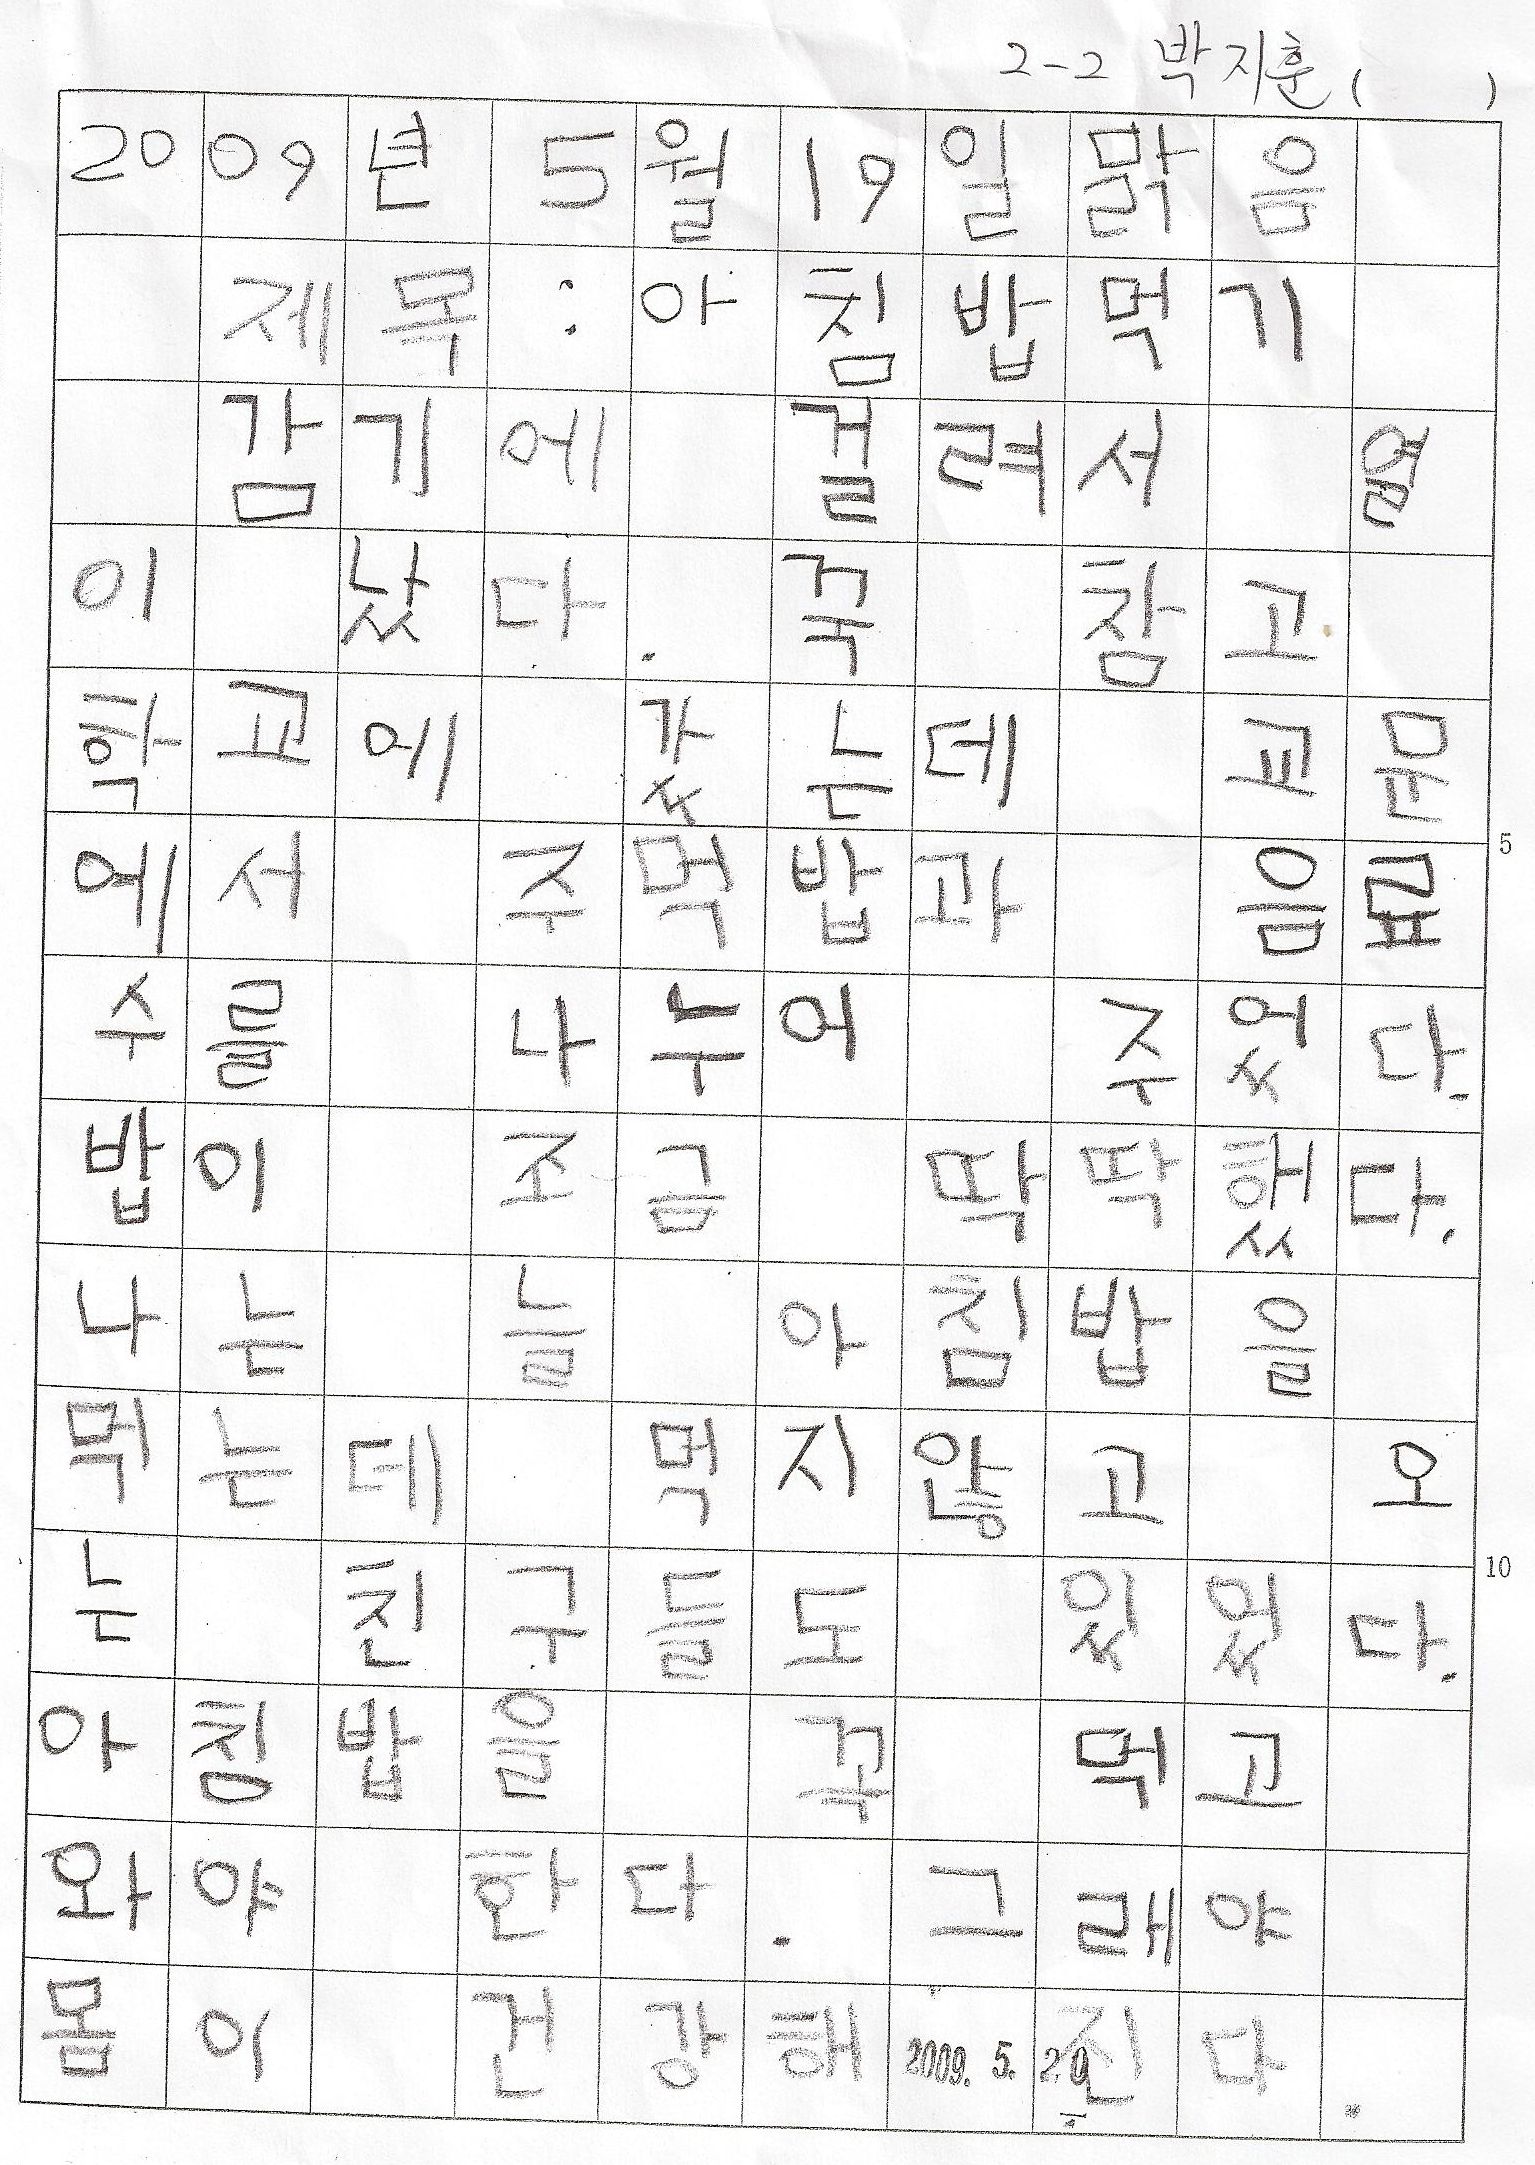 2-2 박지훈 (    )
2009년 5월 19일 맑음
제목 : 아침밥먹기
감기에 걸력서 열
이 났다. 꾹 참고
학교에 갔는데 교문
에서 주먹밥과 음료
수를 나누어 주었다.
밥이 조금 딱딱했다.
나는 늘 아침밥을
먹는데 먹지않고 오
는 친구들도 있었다.
아침밥을 꼭 먹고
와야 한다. 그래야
몸이 건강해 진다.
2009. 5. 20
5
10